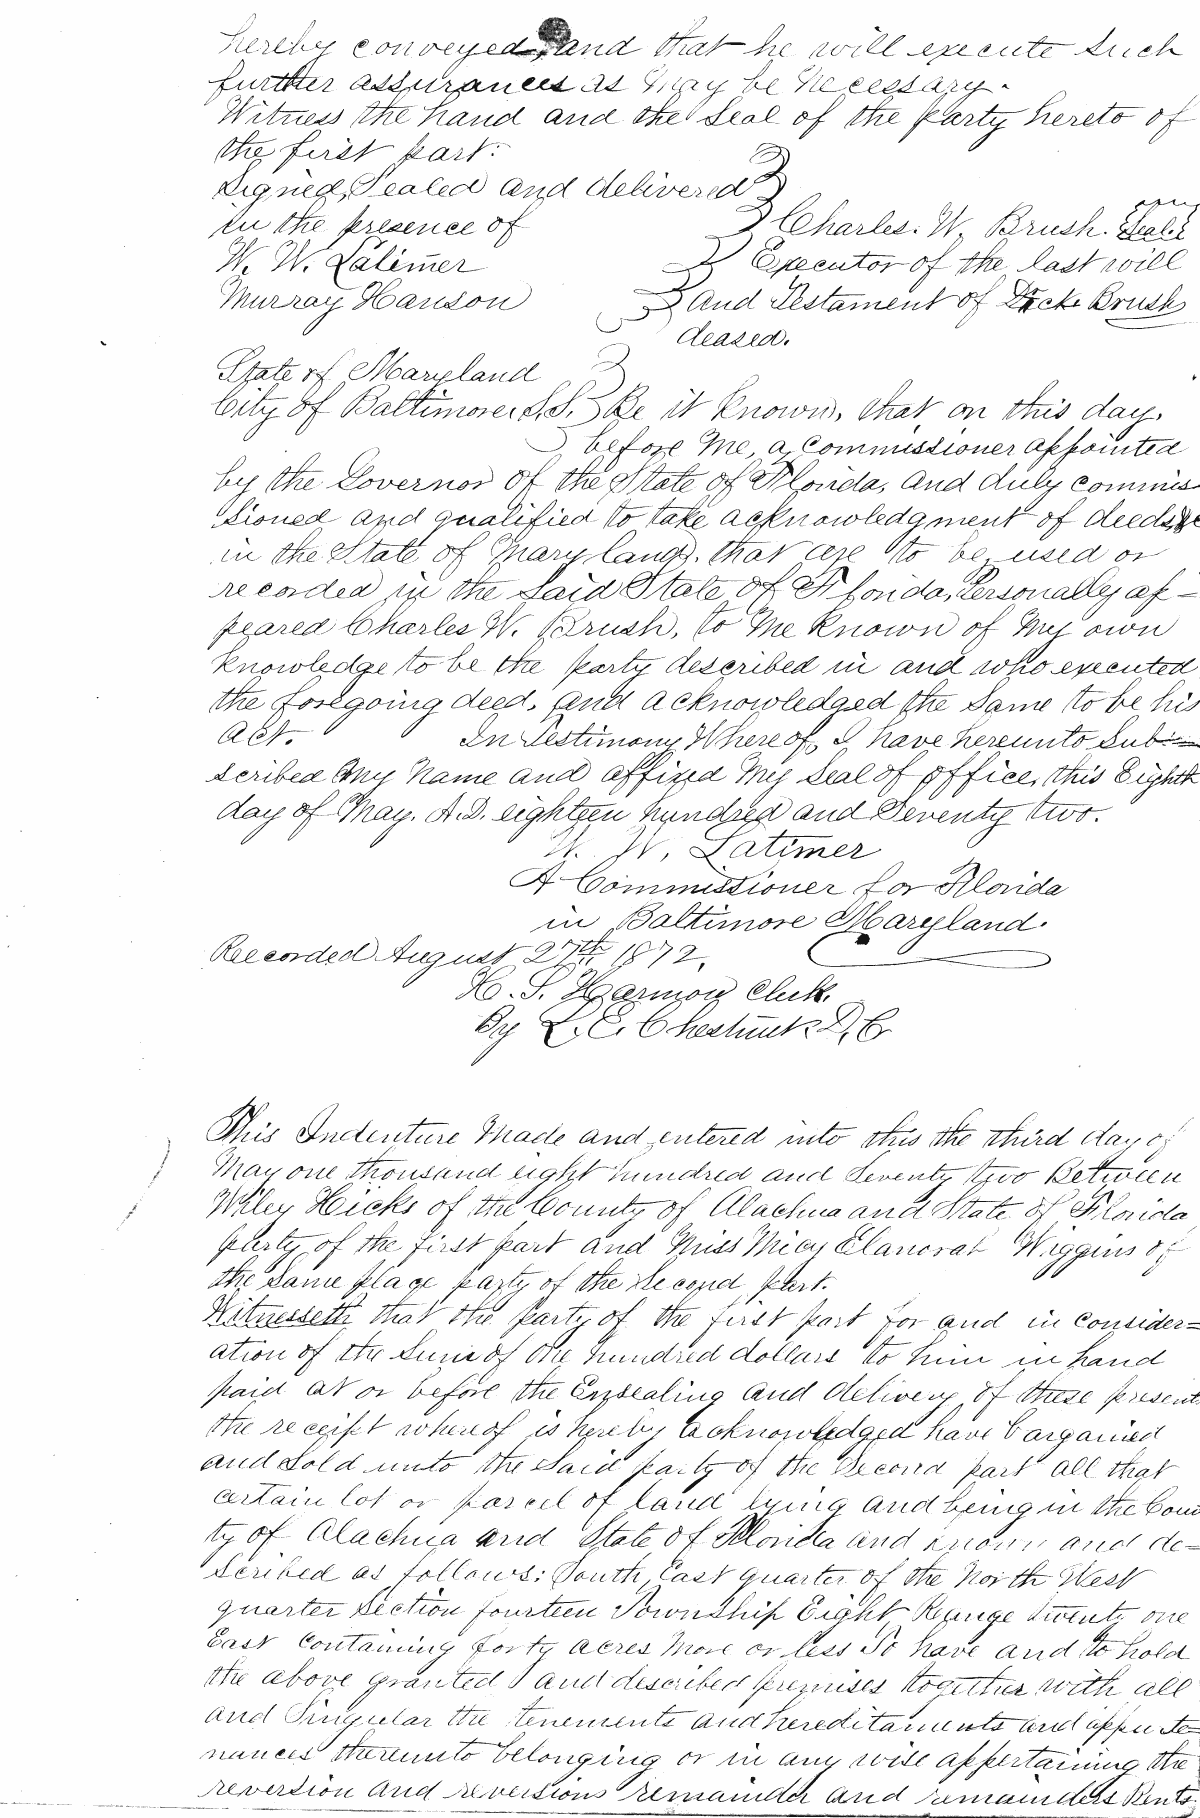 hereby conveyed, and that he will execute such
further assurances as may be necessary.
Witness the hand and the Seal of the party hereto of
the first part.
Signed, Sealed and delivered
in the presence of
Charles. W. Brush. Seal
W. W. Latimer
Executor of the last will
Murray Hanson
and Testament of Brush
deased.
State of Maryland
City of Baltimore, S.S. Be it Known, that on this day,
before me, a Commissioner appointed
by the Governor of the State of Florida, and duly commis
sioned and qualified to take acknowledgment of deeds &c
in the State of Maryland, that are to be used or
recorded in the Said State of Florida, Personally ap-
peared Charles W. Brush, to me Known of my own
Knowledge to be the party described in and who executed
the foregoing deed, and acknowledged the Same to be his
act. In Testimony Whereof, I have hereunto Sub-
scribed my Name and affixed my Seal of office, this Eighth
day of May. A.D. eighteen hundred and Seventy two.
W. W. Latimer
A Commissioner for Florida
in Baltimore Maryland.
Recorded August 27th 1872.
H. S. Harmon Clerk.
By L. E. Chestnut D. C.
This Indenture Made and entered into this the third day of
May one thousand eight hundred and Seventy two Between
Wiley Hicks of the County of Alachua and State of Florida
party of the first part and Miss Micy Elanorah Wiggins of
the Same place party of the Second part.
Witnesseth that the party of the first part for and in consider=
ation of the Sum of One hundred dollars to him in hand
paid at or before the Ensealing and delivery of these presents
the receipt whereof is hereby acknowledged have bargained
and Sold unto the Said party of the Second part all that
certain lot or parcel of land lying and being in the Coun
ty of Alachua and State of Florida and known and de=
scribed as follows: South East quarter of the North West
quarter Section fourteen Township Eight Range twenty one
East Containing forty acres More or less To have and to hold
the above granted and described premises together with all
and Singular the tenements and hereditaments and appurte=
nances thereunto belonging or in any wise appertaining the
reversion and reversions remainder and remainders Rents